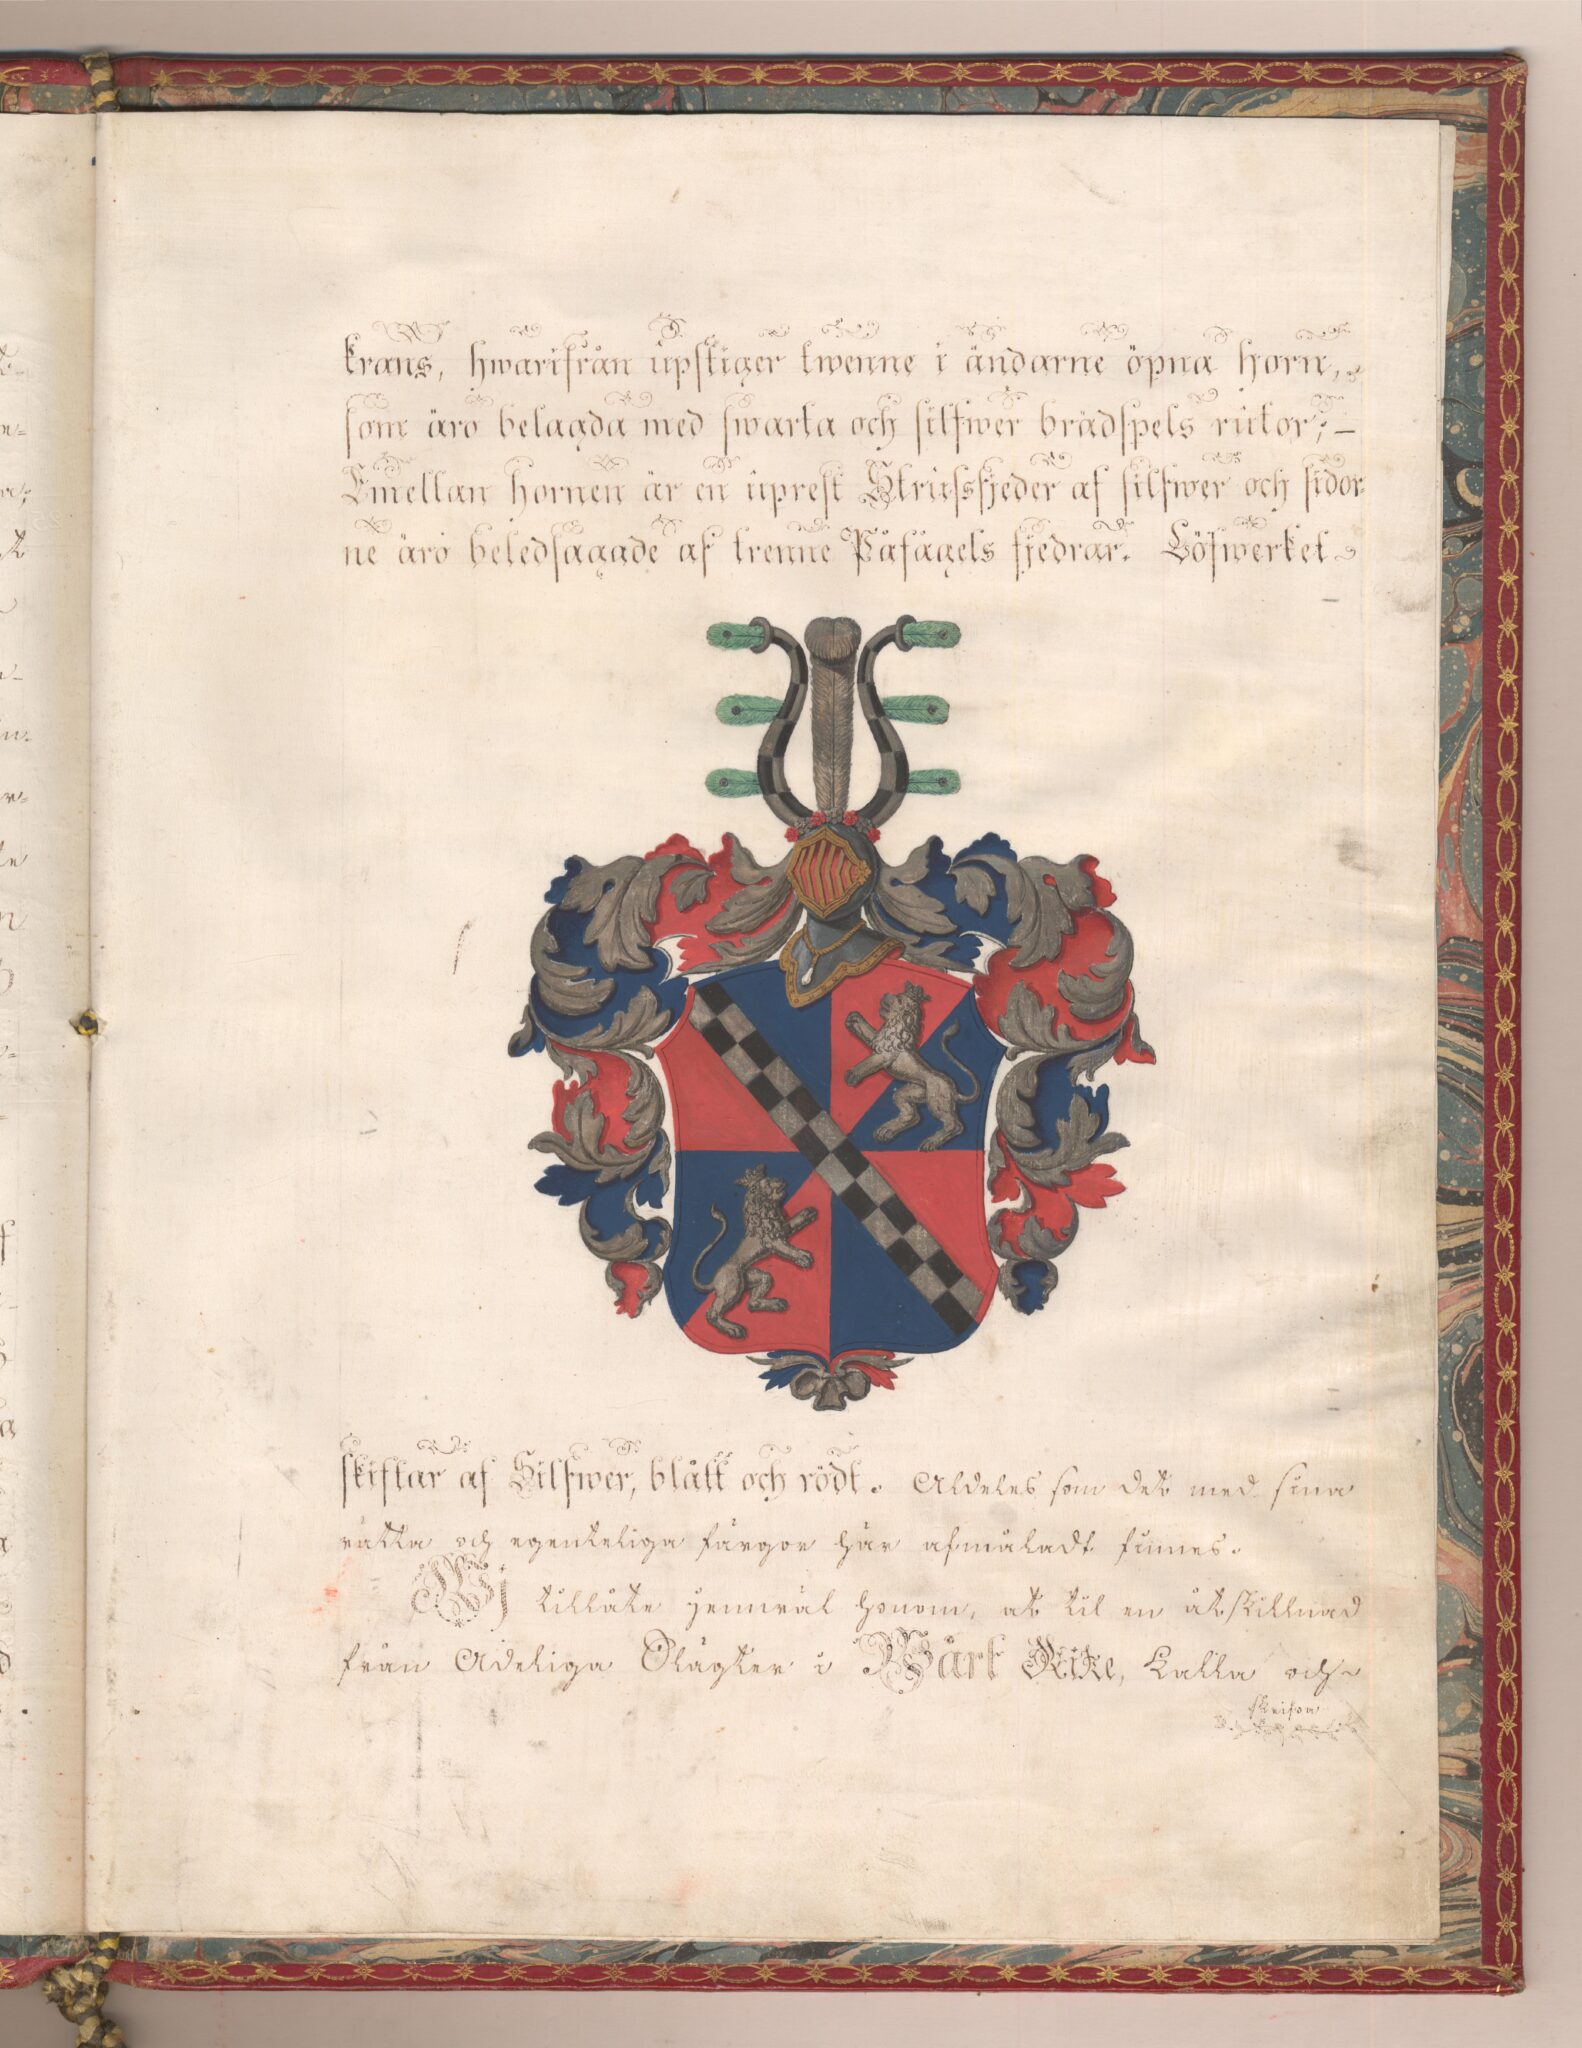 krans, hwarifrån upstiger twenne i ändarne öpna horn,
som äro belagda med swarta och silfwer brädspels rutor; –
Emellan hornen är en uprest Strussfjeder af silfwer och sidor-
ne äro beledsagade af trenne Påfågels fjedrar. Löfwerket
skiftar af Silfwer, blått och rödt. Aldeles som det med sina
rätta och egenteliga färgor här afmåladt finnes.
Wj tillåte jemwäl honom, at til en åtskillnad
från Adeliga Slägter i Wårt Rike, kalla och
skrifwa